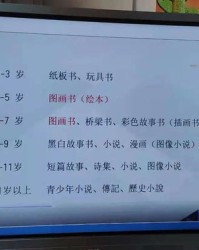 -3 岁 纸板书、玩具书
-5 岁 图画书（绘本）
-7 岁 图画书、桥梁书、彩色故事书（插画书
-9 岁 黑白故事书、小说、漫画（图像小说）
-11岁 短篇故事、诗集、小说、图像小说
岁以上 青少年小说、傳記、歷史小說